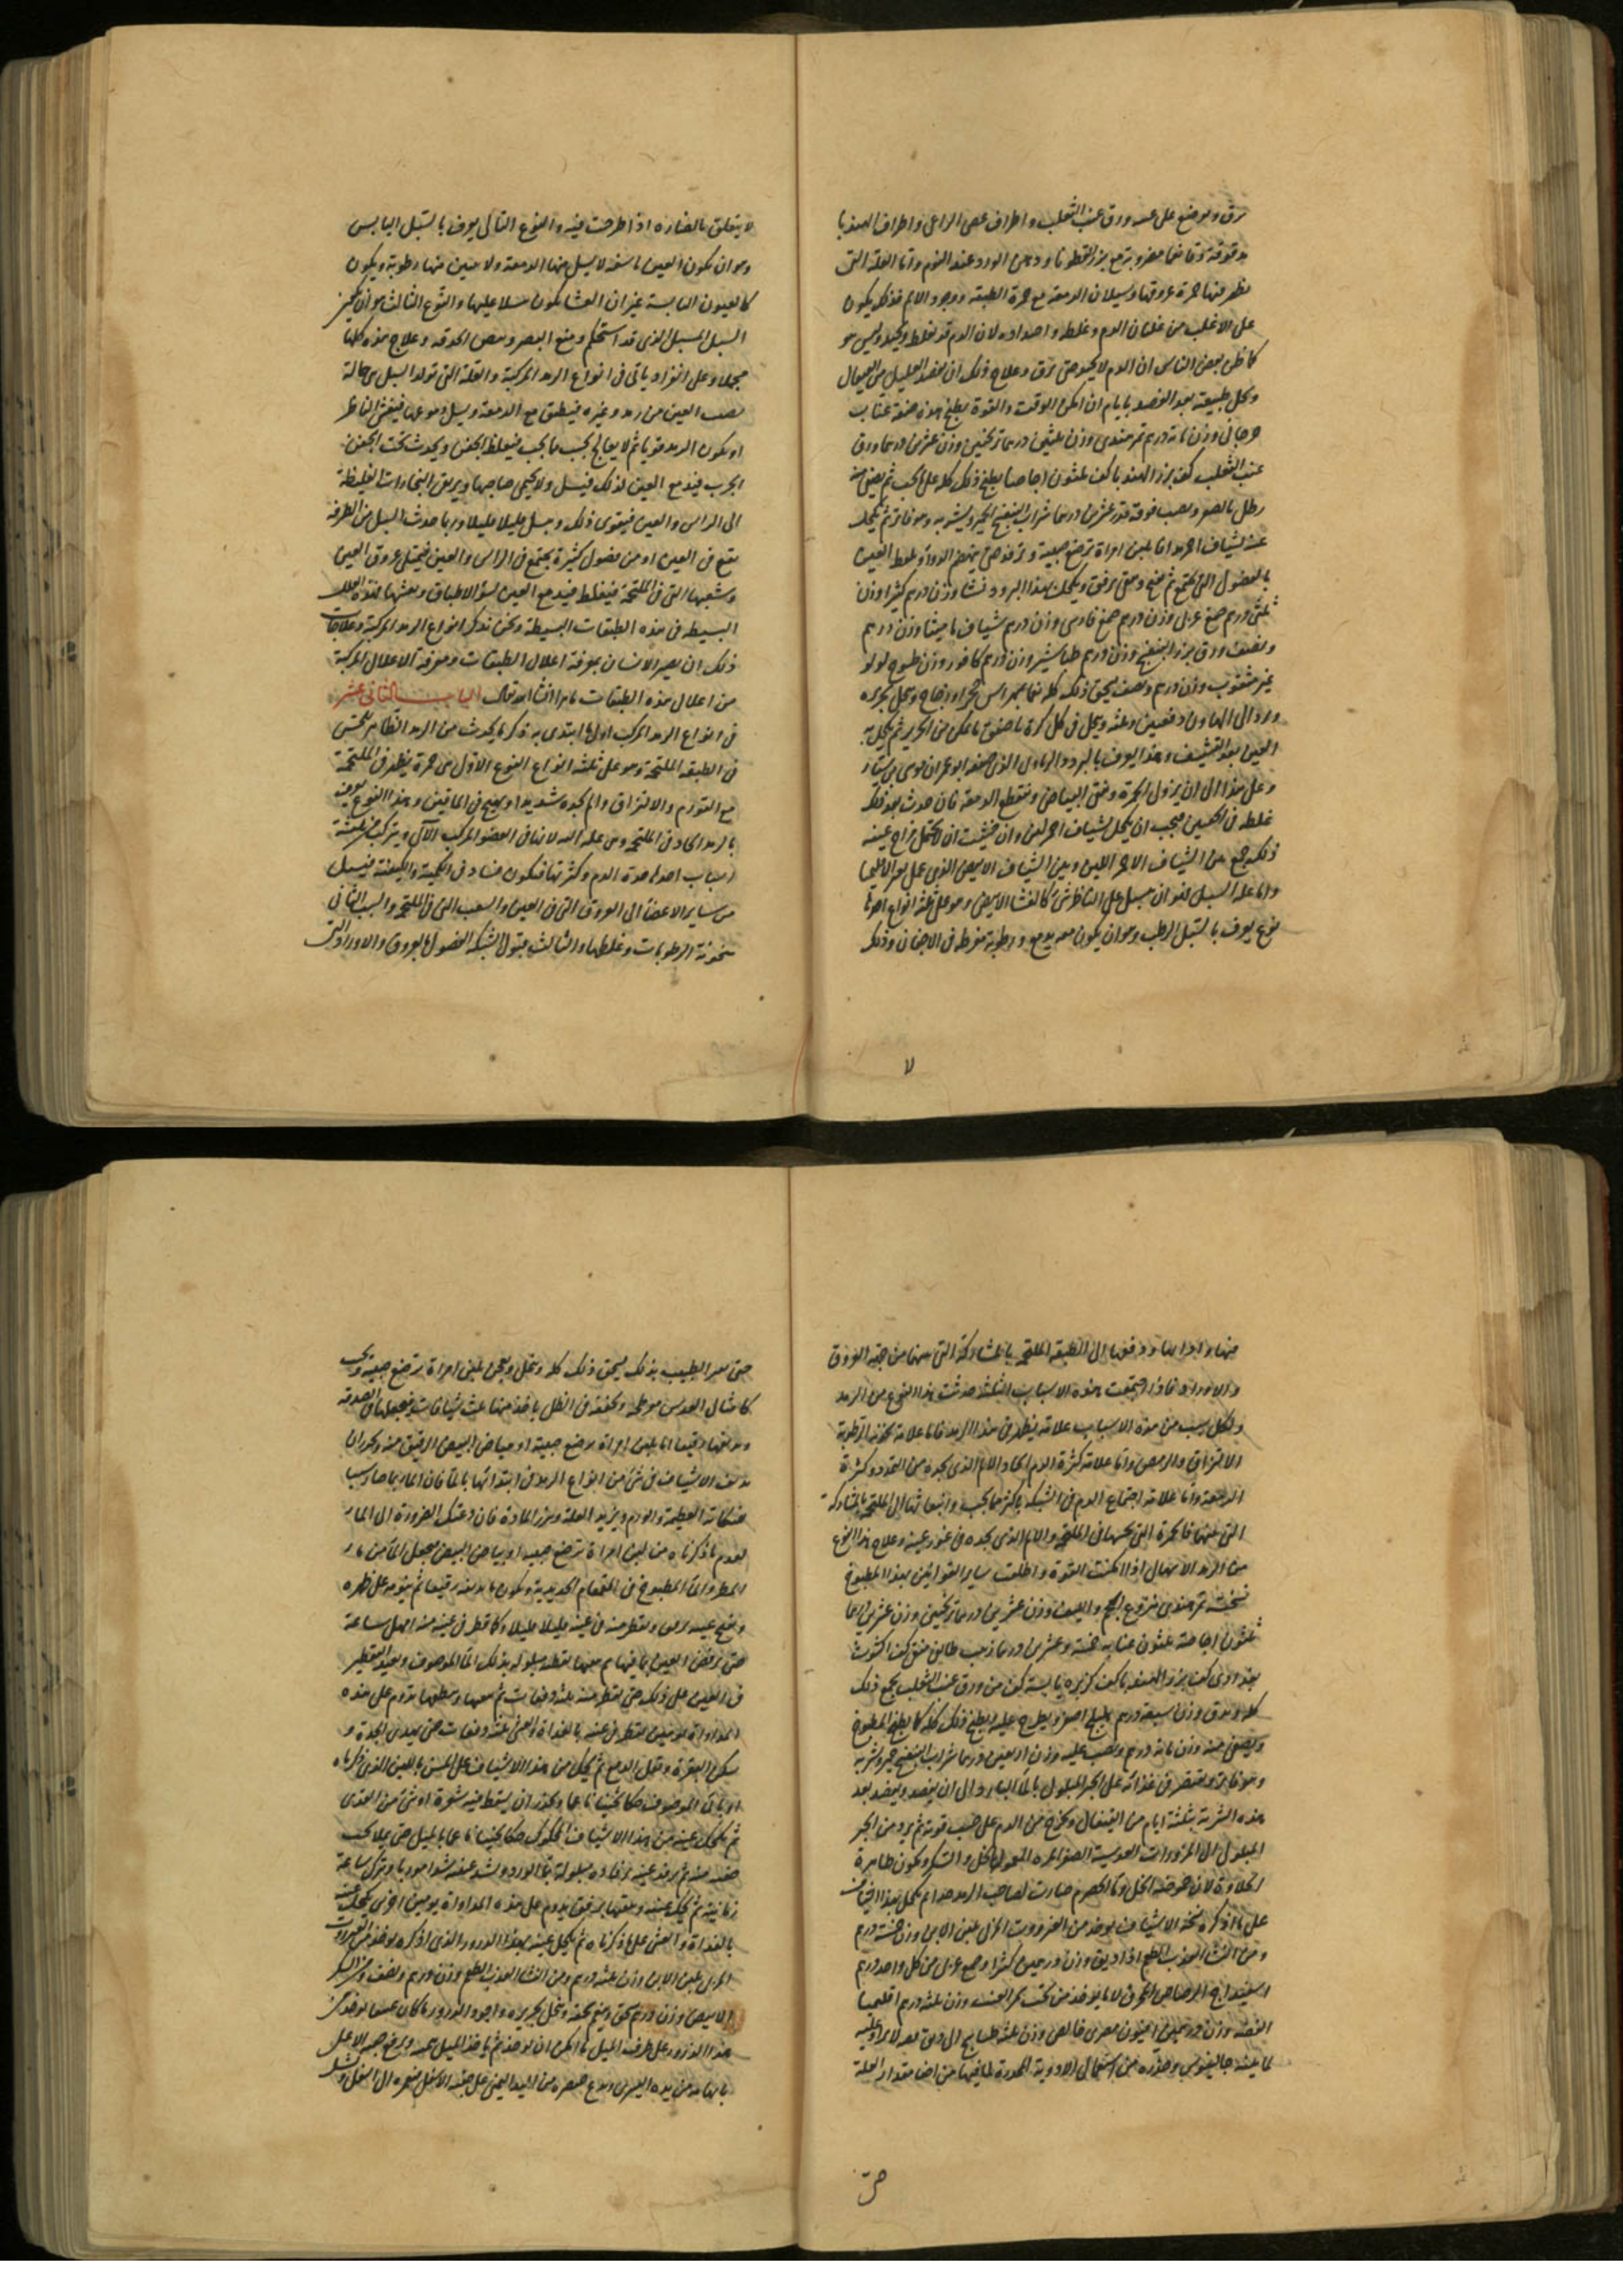 برق ويوضع على عينه ورق عنب الثعلب واطراف عصى الراعى واطراف الهندبا
مدقوقة وقائما مضروبة مع بزرقطونا ودهن الورد عند النوم واما العلة التى
تظهر فيها حمرة عروقها وسيلان الدمعة مع حمرة الطبقة ووجود الالم فذلك يكون
على الاغلب من غليان الدم وغلظه واحتداده لان الدم قد يغلظ ويحتد وليس هو
كما ظن بعض الناس ان الدم لا يحتد حتى يرق وعلاج ذلك ان يفصد العليل من القيفال
ويحل طبيعته بعد الفصد بايام ان امكن الوقت والقوة بطبيخ هذه صفته عناب
جرجانى وزن مائة درهم تمر هندى وزن ثلثين درهما ترنجبين وزن عشرين درهما ورق
عنب الثعلب كف بزر الهندبا كف ثلثون اجاصة يطبخ ذلك كله على ما يجب ثم يصفى منه
رطل بالصغير ويصب فوقه قدر عشرين درهما شراب البنفسج الجيد ويشربه وهو فاتر ثم يكحل
عينه بشياف احمر لين بلبن امراة ترضع صبية وترفده حتى ينهضم الدواء ويلطخ العين
بالفضول التى تجتمع ثم تفتح وتنقى برفق ويكحل بهذا البرود نشا وزن درهم كثيرا وزن
ثلثى درهم صمغ عربى وزن درهم صمغ فارسى وزن درهم شياف ماميثا وزن درهم
ونصف ورق بزر البنفسج وزن درهم طباشير وزن درهم كافور وزن طسوج لولو
غير مثقوب وزن درهم ونصف يسحق ذلك كله نعما بمهراس حجر او زجاج وينخل بحريره
ويرد الى الهاون دفعتين وثلثة وينخل فى كل كرة باصفق ما يمكن من الحرير ثم يكحل به
العين بعد التنشيف وهذا يعرف بالبرود الهارونى الذى صنفه ابو عمران موسى بن سيار
وعلى هذا الى ان يزول الحمرة وينقى البياض وينقطع الدمعة فان حدث بعد ذلك
غلظ فى الجفنين فيجب ان يكحل بشياف احمر لين وان خشيت ان لا يحتمل مزاج عينه
ذلك جمع بين الشياف الاحمر اللين وبين الشياف الابيض الذى عمل بغير الاقليميا
واما علة السبل فهو ان يسبل على الناظر شئ كالغشا الابيض وهو على ثلثة انواع احدها
نوع يعرف بالسبل الرطب وهو ان يكون معه دمع ورطوبة مفرطة فى الاجفان وذلك
لا يتعلق بالصنارة اذا طرحت فيه والنوع الثانى يعرف بالسبل اليابس
وهو ان يكون العين ناشفة لا يسيل منها الدمعة ولا يتبين منها رطوبة ويكون
كالعيون اليابسة غير ان الغشا يكون مسبلا عليها والنوع الثالث هو ان يحمر
السبل المسبل الذى قد استحكم ومنع البصر وبيض الحدقة وعلاج هذه كلها
مجملا وعلى انفراد ياتى فى انواع الرمد المركبة والعلة التى تولد السبل هى حالة
تصيب العين من رمد وغيره فينطبق مع الدمعة ويسيل دموعها فيغشى الناظر
او يكون الرمد قويا ثم لا يعالج بحسب ما يجب فيغلظ الجفن ويحدث تحت الجفن
الجرب فيدمع العين لذلك فيسبل ولا يحتمى صاحبها ويرتقى البخارات الغليظة
الى الراس والعين فيتقوى ذلك ويسبل قليلا قليلا وربما حدث السبل من الطرفة
تقع فى العين او من فضول كثيرة يجتمع فى الراس والعين فيمتلى عروق العين
وشعبها التى فى الملتحمة فيغلظ فيدمع العين لسوء الاطباق وبعشها فهذه العلل
البسيطة فى هذه الطبقات البسيطة ونحن نذكر انواع الرمد المركبة وعلاجات
ذلك ان يصير الانسان بمعرفة اعلال الطبقات ومعرفة الاعلال المركبة
من اعلال هذه الطبقات ماهرا انشا الله تعالى الباب الثانى عشر
فى انواع الرمد المركب اول ما ابتدى به ذكر ما يحدث من الرمد الظاهر للحس
فى الطبقة الملتحمة وهو على ثلثة انواع النوع الاول هى حمرة يظهر فى الملتحمة
مع التورم والالتزاق والم يجده شديد او يهيج فى الماقين وهذا النوع يعرف
بالرمد الحاد فى الملتحمة وهى علة آلية لانها فى العضو المركب الآلى ويتركب من ثلثة
اسباب احدها حدة الدم وكثرتها فتكون فساد فى الكمية والكيفية فيسيل
من ساير الاعضا الى العروق التى فى العين والشعب التى فى الملتحمة والسبب الثانى
سخونة الرطوبات وغلظها والثالث قبول الشبكة الفضول بالعروق والاوراد التى
فيها وايرادها ودفعها الى الطبقة الملتحمة بالمشاركة التى بينهما من جهة العروق
والاوراد فاذا اجتمعت هذه الاسباب الثلثة حدثت هذا النوع من الرمد
ولكل سبب من هذه الاسباب علامة يظهر فى هذا الرمد فاما علامة سخونة الرطوبة
الالتزاق والرمص واما علامة كثرة الدم الحاد والالم الذى يجده من التمدد وكثرة
الدمعة واما علامة اجتماع الدم فى الشبكة باكثر مما يجب وانبعاثها الى الملتحمة بالمشاركة
التى بينهما فالحمرة التى تجدها فى الملتحمة والالم الذى يجده فى غور عينيه وعلاج هذا النوع
من الرمد الاسهال اذا امكنت القوة واطلقت ساير القوانين بهذا المطبوخ
نسخته تمر هندى منزوع العجم والليف وزن عشرين درهما ترنجبين وزن عشرين درهما
ثلثون اجاصة ثلثون عنابة خمسة وعشرين درهما زبيب طائفى منقى كف اكشوث
بغدادى كف بزر الهندبا كف كزبرة يابسة كف من ورق عنب الثعلب يجمع ذلك
كله ويدق وزن سبعة درهم هليلج اصفر ويطرح عليه ويطبخ ذلك كله كما يطبخ المطبوخ
ويصفى منه وزن مائة درهم ويصب عليه وزن اربعين درهما شراب البنفسج جيد ويشربه
وهو فاتر ويقتصر فى غذائه على الخبز المبلول بالماء البارد الى ان يفصد ويفصد بعد
هذه الشربة بثلثة ايام من القيفال ويخرج من الدم على حسب قوته ثم يرده من الخبز
المبلول الى المزورات العدسية الصفراء المعمولة بالخل والسكر ويكون ظاهرة
الحلاوة لان حموضة الخل وماء الحصرم صارت لصاحب الرمد جدا ثم يكحل بهذا الشياف
على ما اذكره نسخة الاشياف يوخذ من العنزروت المربى بلبن الاتن وزن خمسة درهم
ومن النشا العذب الطعم اذا ذيق وزن درهمين كثيرا وصمغ عربى من كل واحد درهم
اسفيداج الرصاص المحرق لا ما يوخذ من تحت وزن ثلثة درهم اقليميا
الفضة وزن درهمين افيون مصرى خالص وزن ثلثة طساسيج الى دانق لا يزاد عليه
لما يثبته جالينوس وحذره من استعمال الادوية المخدرة لما فيها من اضا مقدار العلة
حتى يصير الطبيب بذلك يسحق ذلك كله وينخل ويعجن بلبن امراة ترضع صبية ويحبب
كامثال العدس مفرطحة ويجففه فى الظل ياخذ منها ثلث شيافات ويجعلها فى الصدفة
ويدافها دقيقا اما بلبن امراة ترضع صبية او ببياض البيض الرقيق منه ويحذر ان
يديف الاشياف فى شئ من انواع الرمد فى ابتدائها بالماء فان الماء ربما صار سببا
النكاية العظيمة والورم ويزيد العلة ويزيد المادة فان دعتك الضرورة الى الماء
لعدم ما ذكرناه من لبن امراة ترضع صبية او بياض البيض فيجعل الماء من ماء
المطر والماء المطبوخ فى القمقام الحديدية ويكون ما يديفه رقيقا ثم ينومه على ظهره
ويفتح عينيه برفق ويقطر منه فى عينه قليلا قليلا وكلما قطر فى عينه منه امهل ساعة
حتى يرفض العين بما فيها ثم يمسحها بقطنة مبلولة بذلك الماء الموصوف ويعيد التقطير
فى العين على ذلك حتى يقطر منه ثلثة دفعات ثم يمسحها وينطلها يدوم على هذه
المداواة يومين يقطر فى عينه بالغداة والعشى ثلثة دفعات حتى يهدى الحدة و
يسكن الحمرة ويقل الدمع ثم يحك من هذا الاشياف على المسن باللبن الذى ذكرناه
او بالماء الموصوف حكا ثخينا ناعما ويحذر ان يسقط فيه شعرة او شئ من القذى
ثم تكحل عينه من هذا الاشياف المحكوك حكا ثخينا ناعما بالميل حتى يملا تحت
جفنه منه ثم يرفد عينه برفادة مبلولة بماء الورد ويشد عينه شدا جيدا ويترك ساعة
زمانية ثم يحل عينه وينقيها برفق يدوم على هذه المداواة يومين اخرى يكحل عينه
بالغداة والعشى على ما ذكرناه ثم يكحل عينه بهذا الذرور الذى اذكره يوخذ من العنزروت
المربى بلبن الاتن وزن ثلثة درهم ومن النشا العذب الطعم وزن درهم ونصف ومن السكر
الابيض وزن درهم يسحق وينعم سحقه وينخل بحريرة واجود الذرور ما كان عتيقا يوخذ من
هذا الذرور على طرف الميل ما امكن ان يوخذ ثم ياخذ الميل بيده ويرفع جفنه الاعلى
بابهامه من يده اليسرى ويدع خنصره من اليد اليمنى على جفنه الاسفل فيجره الى اسفل ويسبل